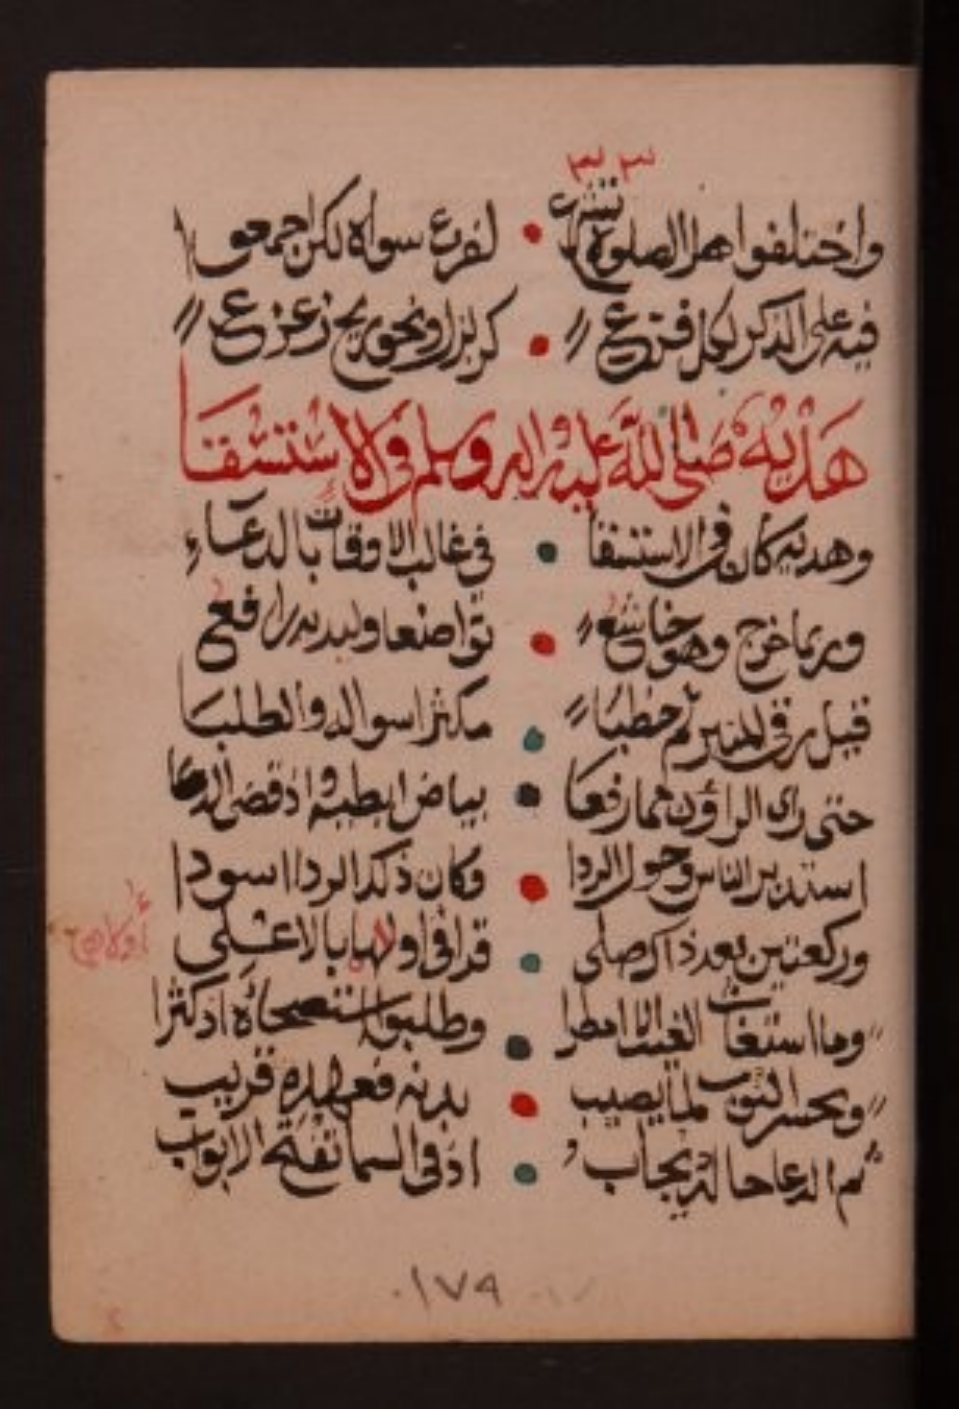 ٣ ٣
واختلفوا هل الصلوة تشرع • لفزع سواه لكن اجمعوا
فيه على الذكر لكل فزع • كزلزل ونحو ريح زعزع
هديه صلى الله عليه واله وسلم في الاستسقا
وهديه كان في الاستسقا • في غالب الاوقات بالدعاء
وربما خرج وهو خاشع • تواضعا وليديه رافع
قيل رقى المنبر ثم خطبا • مكثرا سواله والطلبا
حتى راى الراؤن هما رفعا • بياض ابطيه واذ قضى الدعا
استدبر الناس وحول الردا • وكان ذكد الردا اسودا
وركعتين بعد ذاك صلى • قرا في اولاها بالاعلى
أولاه
وما استغاث الغيث الا امطرا • وطلبوا استصحاه اذ كثرا
ويحسر الثوب لما يصيب • بدنه فعهده قريب
ثم الدعا حالتئذ يجاب • اذ في السما تفتح الابواب
١٧٩